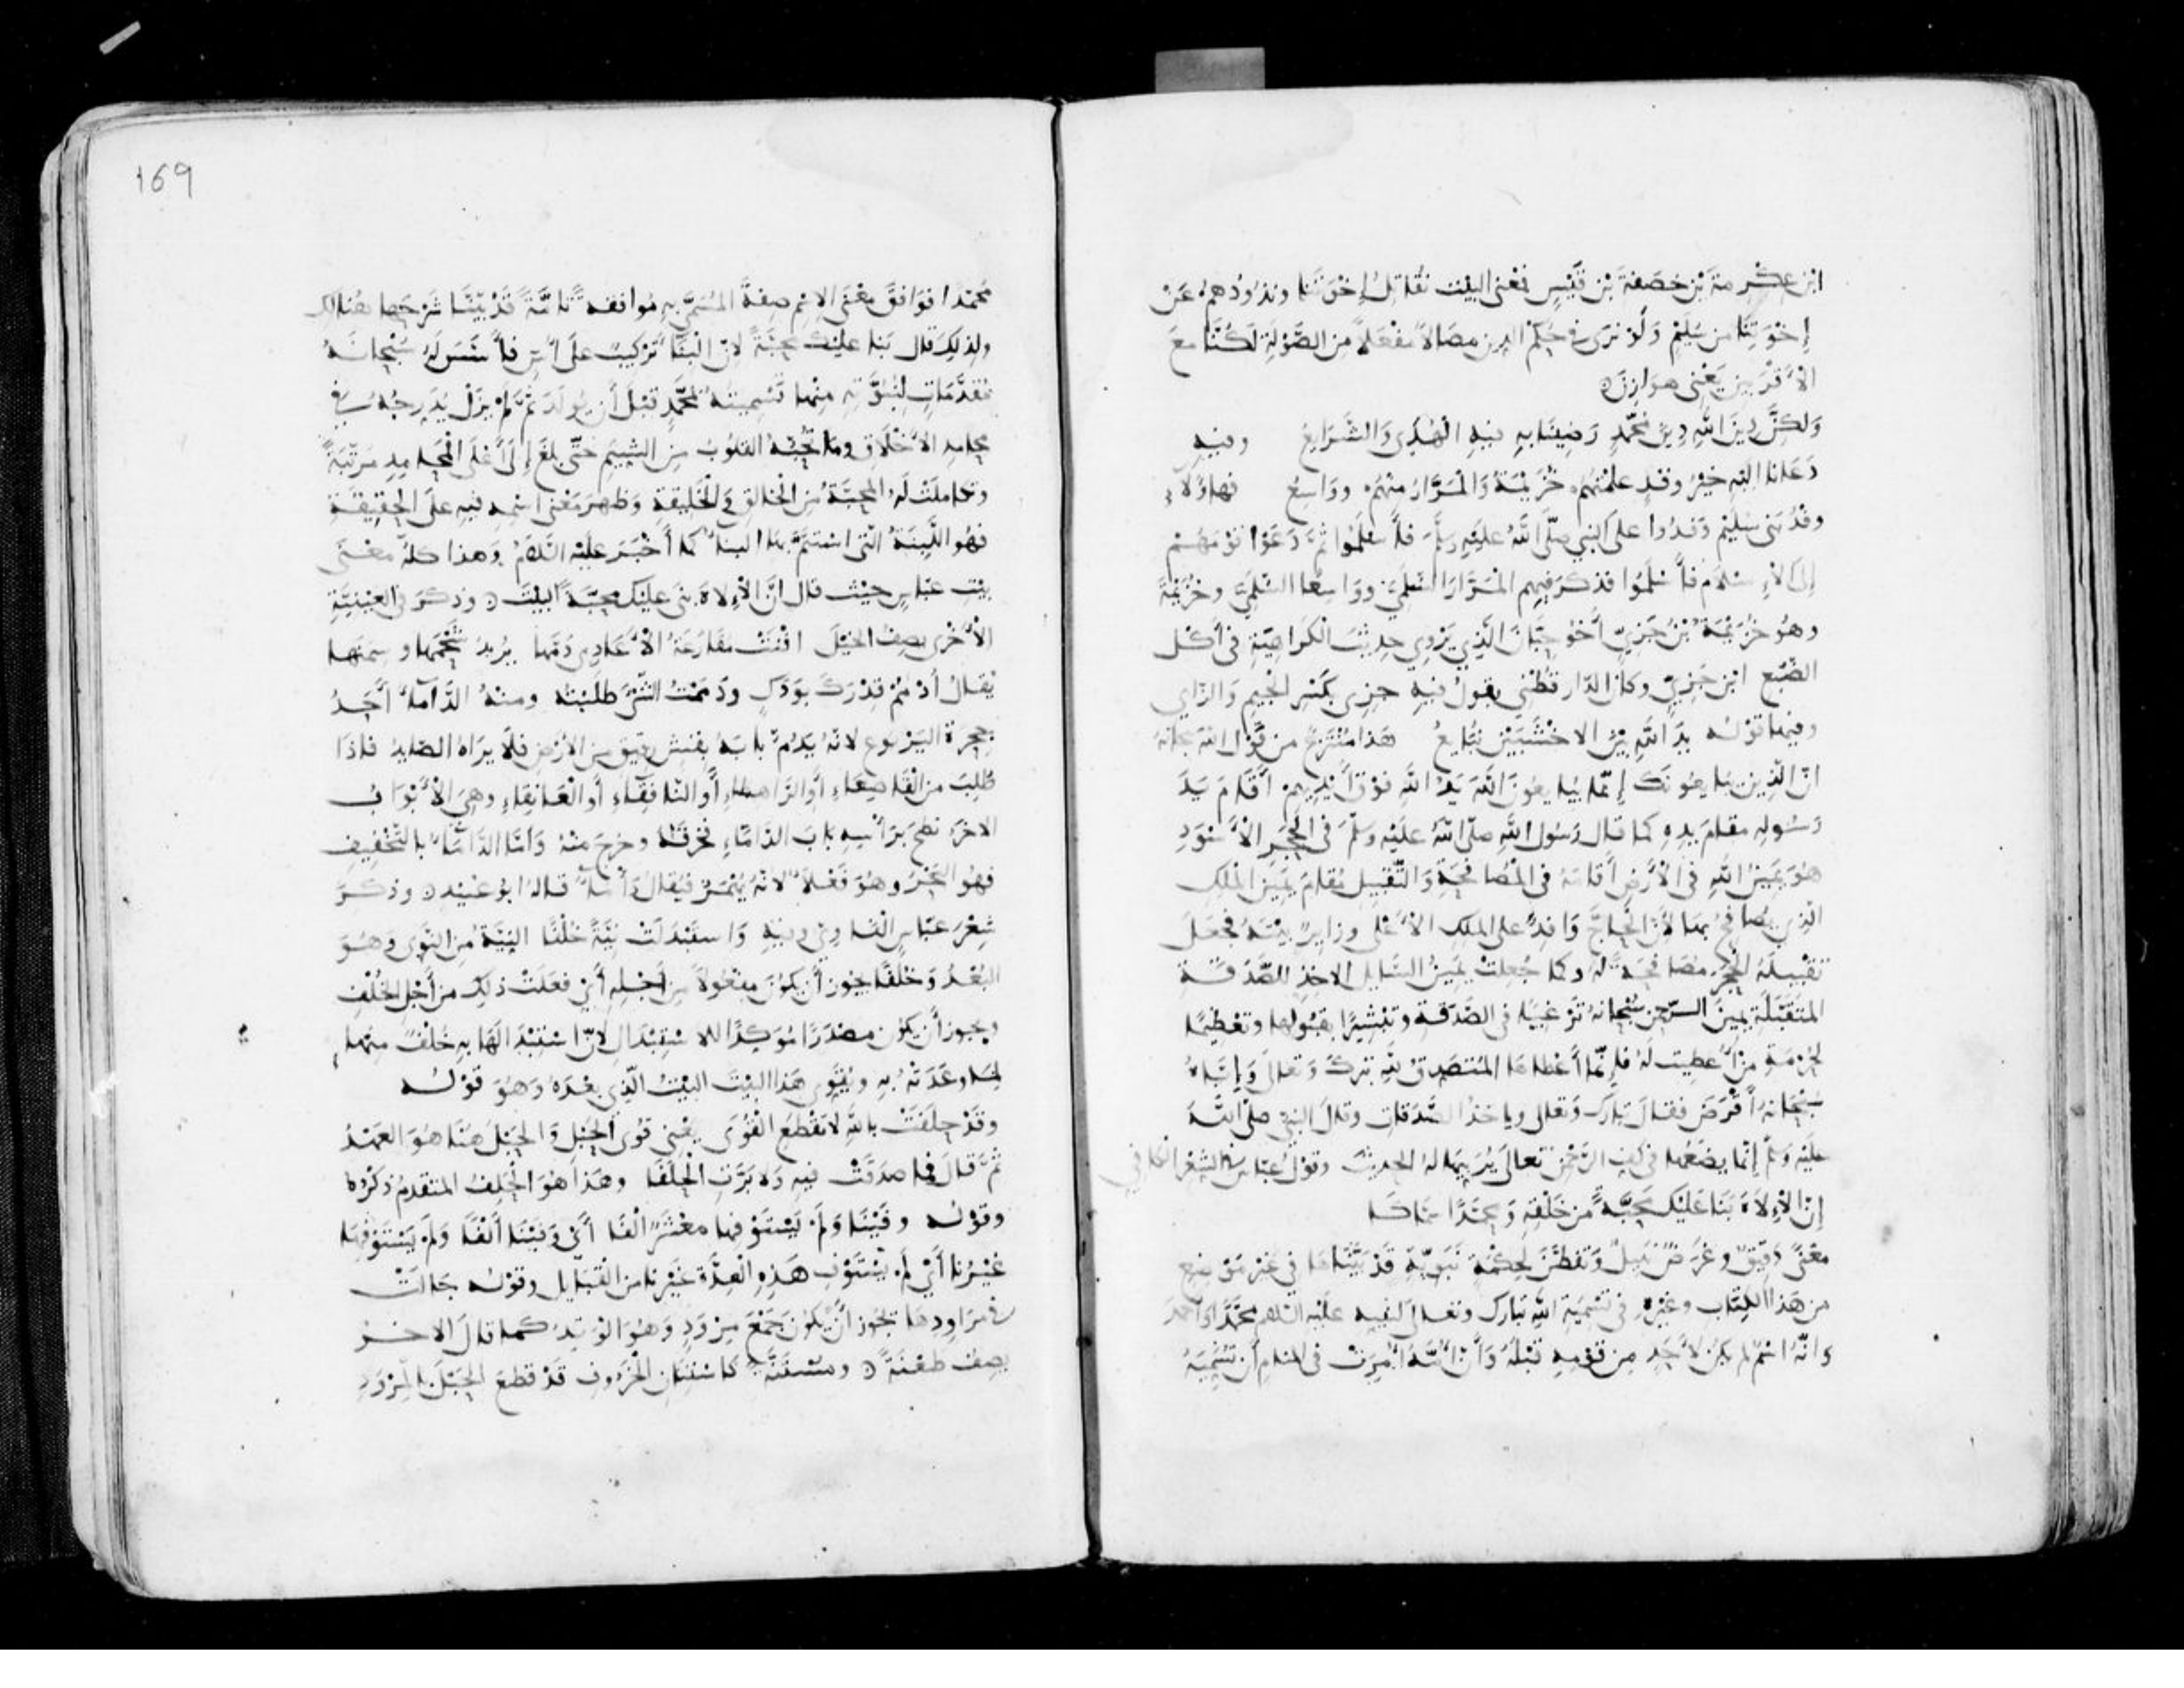 ابن عكرمة بن خصفة بن قيس فمعنى البيت نقاتل إخوتنا ونذودهم عن
إخوتنا من سليم ولو نرى في حكم الدين مصالا مفعلا من الصولة لكنا مع
الأقربين يعني هوازن
ولكن دين الله دين محمد رضينا به فيه الهدى والشرايع وفيه
دعانا اليه خير وفد علمتهم خزيمة والمرار منهم وواسع فهاولاء
وفد بني سليم وفدوا على النبي صلى الله عليه وسلم فأسلموا ثم دعوا قومهم
إلى الإسلام فأسلموا فذكر فيهم المرار السلمي وواسعا السلمي وخزيمة
وهو خزيمة بن جزي أخو حبان الذي يروي حديث الكراهية في أكل
الضبع ابن جزي وكان الدارقطني يقول فيه جزي بكسر الجيم والزاي
وفيها قوله يد الله بين الاخشبين نبايع هذا منتزع من قول الله سبحانه
ان الذين يبايعونك إنما يبايعون الله يد الله فوق أيديهم أقام يد
رسوله مقام يده كما قال رسول الله صلى الله عليه وسلم في الحجر الأسود
هو يمين الله في الأرض أقامه في المصافحة والتقبيل مقام يمين الملك
الذي يصافح بها لأن الحاج وافد على الملك الأعلى وزاير بيته فجعل
تقبيله الحجر مصافحة له وكما جعلت يمين السايل الاخذ للصدقة
المتقبلة يمين الرحمن سبحانه ترغيبا في الصدقة وتبشيرا بقبولها وتعظيما
لحرمة من أعطيت له فإنما أعطاها المتصدق لله تبرك وتعالى وإياه
سبحانه أقرض فقال تبارك وتعالى وياخذ الصدقات وقال النبي صلى الله
عليه وسلم إنما يضعها في كف الرحمن تعالى يربيها له الحديث وقول عباس في الشعر الكافي
إن الإلاه بنا عليك محبة من خلقه ومحمدا سماكا
معنى دقيق وغرض نبيل وتفطن لحكمة نبوية قد بيناها في غير موضع
من هذا الكتاب وغيره في تسمية الله تبارك وتعالى لنبيه عليه السلم محمدا واحمد
وانه اسم لم يكن لأحد من قومه قبله وأن أمه أمرت في المنام أن تسميه
169
محمدا فوافق معنى الاسم صفة المسمى به موافقة تامة قد بينا شرحها هنالك
ولذلك قال بنا عليك محبة لان البنا تركيب على أس فأسس له سبحانه
مقدمات لنبوته منها تسميته بمحمد قبل أن يولد ثم لم يزل يدرجه في
محامد الأخلاق وما تحبه القلوب من الشيم حتى بلغ إلى أعلى المحامد مرتبة
وتكاملت له المحبة من الخالق والخليقة وظهر معنى اسمه فيه على الحقيقة
فهو اللبنة التي استتم بها البنا كما أخبر عليه السلم وهذا كله معنى
بيت عباس حيث قال ان الإلاه بنى عليك محبة البيت وذكر في العينية
الأخرى يصف الخيل افنت مقارعة الأعادي دمها يريد شحمها وسمنها
يقال أدمم قدرك بودك ودممت الشي طليته ومنه الداماء أحد
جحرة اليربوع لانه يدم بابه بقشر رقيق من الأرض فلا يراه الصايد فاذا
طلب من القاصعاء أو الراهطاء أو النافقاء أو العانقاء وهي الأبواب
الاخر نطح برأسه باب الداماء فخرقه وخرج منه وأما الدأماء بالتخفيف
فهو البحر وهو فعلا لانه يهمز فيقال دأما قاله ابو عبيد وذكر
شعر عباس الفاوي وفيه واستبدلت نية خلفا النية من النوى وهو
البعد وخلفا يجوز أن يكون مفعولا من أجله أي فعلت ذلك من أجل الخلف
ويجوز أن يكون مصدرا مؤكدا للاستبدال لان استبدالها به خلف منها
لما وعدته به ويقوي هذا البيت البيت الذي بعده وهو قوله
وقد حلفت بالله لا تقطع القوى يعني قوى الحبل والحبل هنا هو العهد
ثم قال فما صدقت فيه ولا برت الحلفا وهذا هو الخلف المتقدم ذكره
وقوله وفينا ولم يستوفها معشر الفا أي وفينا ألفا ولم يستوفها
غيرنا أي لم يستوف هذه العدة غيرنا من القبايل وقوله جالت
في مراودها يجوز أن يكون جمع مرود وهو الوتد كما قال الاخر
يصف طعنة ومستنة كاستنان الخروف قد قطع الحبل بالمرود